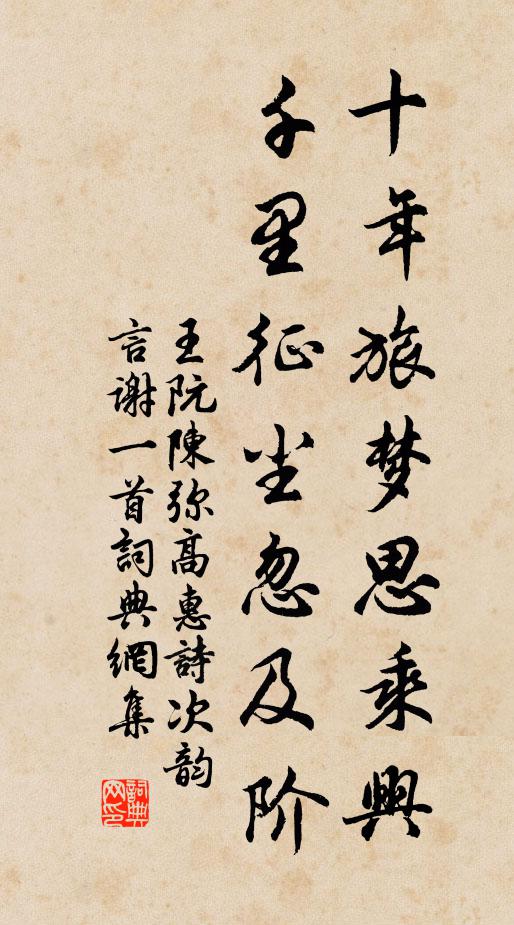 十年旅梦思乘興
千里征尘忽及阶
王阮陳弥高惠詩次韵
言谢一首詞典網集
詞典网印